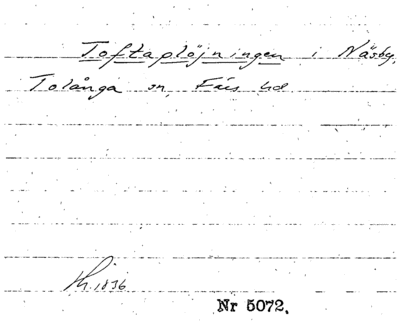 Toftaplöjningen i Näsby,
Tolånga sn, Färs hd
1836
Nr 5072.